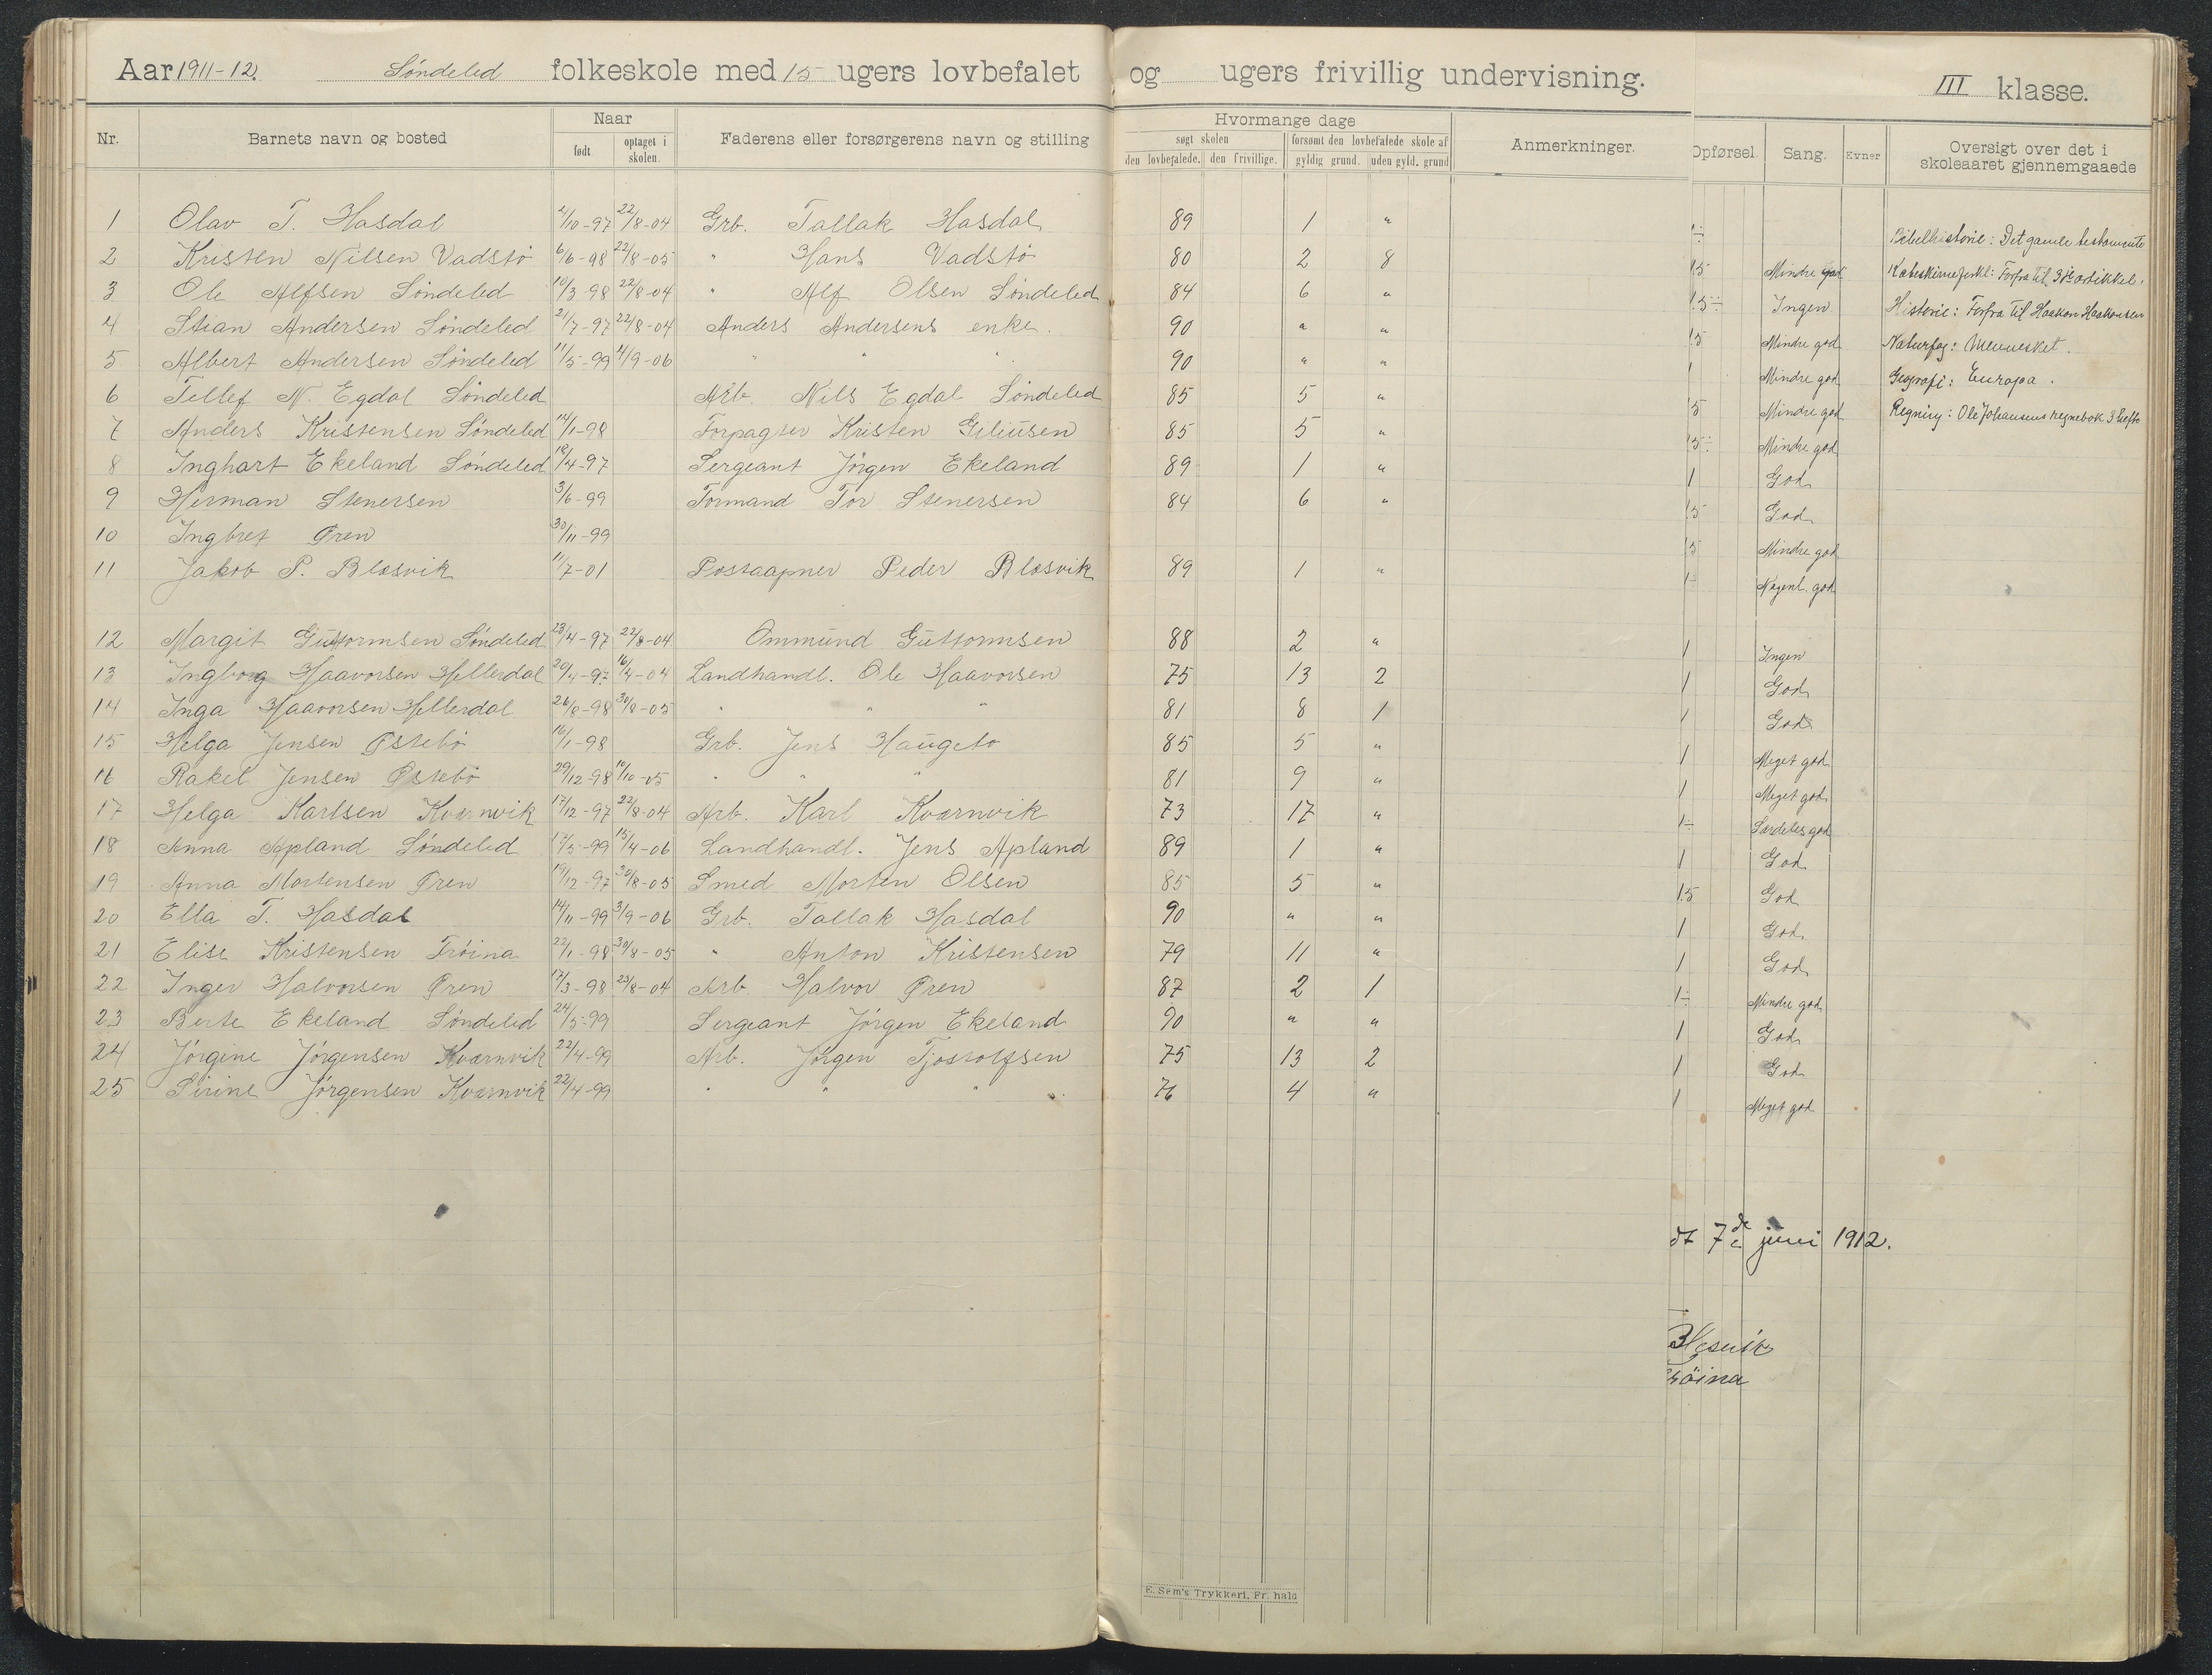 Aar 1911-12. Söndeled folkeskole med 15 ugers lovbefalet og ugers frivillig undervisning. III klasse.
Nr. Barnets navn og bosted Naar født optaget i skolen. Faderens eller forsørgerens navn og stilling Hvormange dage søgt skolen den lovbefalede. den frivillige. forsømt den lovbefalede skole af gyldig grund. uden gyld. grund Anmerkninger. Opførsel. Sang. Evner Oversigt over det i skoleaaret gjennemgaaede
1 Olav T. Hasdal 2/10-97 22/8-04 Grb. Tallak Hasdal 89 1 " 1÷ Bibelhistorie: Det gamle testamente
2 Kristen Nilsen Vadstö 6/6-98 22/8-05 " Hans Vadstö 80 2 8 1.5 Mindre god Forfra til 3die artikkel.
3 Ole Alfsen Söndeled 10/3-98 22/8-04 " Alf Olsen Söndeled 84 6 " 1.5÷ Ingen Historie: Forfra til Haakon Haakonsen
4 Stian Andersen Söndeled 21/7-97 22/8-04 Anders Andersens enke. 90 " " 1.5 Mindre god Naturfag: Mennesket.
5 Albert Andersen Söndeled 11/5-99 4/9-06 " " " 90 " " 1 Mindre god Geografi: Europa.
6 Tellef N. Egdal Söndeled Arb. Nils Egdal Söndeled 85 5 " 1.5 Mindre god Regning: Ole Johansens regnebok 3 hefte
7 Anders Kristensen Söndeled 14/1-98 Forpagter Kristen Giliusen 85 5 " 1.5÷ Mindre god
8 Inghart Ekeland Söndeled 18/4-97 Sergeant Jörgen Ekeland 89 1 " 1 God
9 Herman Stenersen 3/6-99 Formand Tor Stenersen 84 6 " 1.5 God
10 Ingbret Pren 30/11-99 1.5 Mindre god
11 Jakob P. Blæsvik 11/7-01 Postaapner Peder Blæsvik 89 1 " 1÷ Nogenl. god
12 Margit Guttormsen Söndeled 23/4-97 22/8-04 Ommund Guttormsen 88 2 " 1 Ingen
13 Ingborg Haavorsen Hellerdal 20/4-97 16/4-04 Landhandl. Ole Haavorsen 75 13 2 1 God
14 Inga Haavorsen Hellerdal 26/8-98 30/8-05 " " " 81 8 1 1 God
15 Helga Jensen Østebö 16/1-98 Grb. Jens Haugeto 85 5 " 1 Meget god
16 Rakel Jensen Østebö 29/12-98 10/10-05 " " " 81 9 " 1 Meget god
17 Helga Karlsen Kværnvik 17/12-97 22/8-04 Arb. Karl Kværnvik 73 17 " 1÷ Særdeles god
18 Anna Apland Söndeled 17/5-99 15/4-06 Landhandl. Jens Apland 89 1 " 1 God
19 Anna Mortensen Pren 19/12-97 30/8-05 Smed Morten Olsen 85 5 " 1.5 God
20 Ella T. Hasdal 14/11-99 3/9-06 Grb. Tallak Hasdal 90 " " 1 God
21 Elise Kristensen Tröina 22/1-98 30/8-05 " Anton Kristensen 79 11 " 1 God
22 Inger Halvorsen Pren 17/3-98 23/8-04 Arb. Halvor Pren 87 2 1 1÷ Mindre god
23 Berte Ekeland Söndeled 24/5-99 Sergeant Jörgen Ekeland 90 " " 1 God
24 Jörgine Jörgensen Kværnvik 22/4-99 Arb. Jörgen Tjostolfsen 75 13 2 1 God
25 Sirine Jörgensen Kværnvik 22/4-99 " " " " 76 4 " 1 Meget god
7de juni 1912.
Hesvik
röina
E. Sem's Trykkeri, Fr.hald